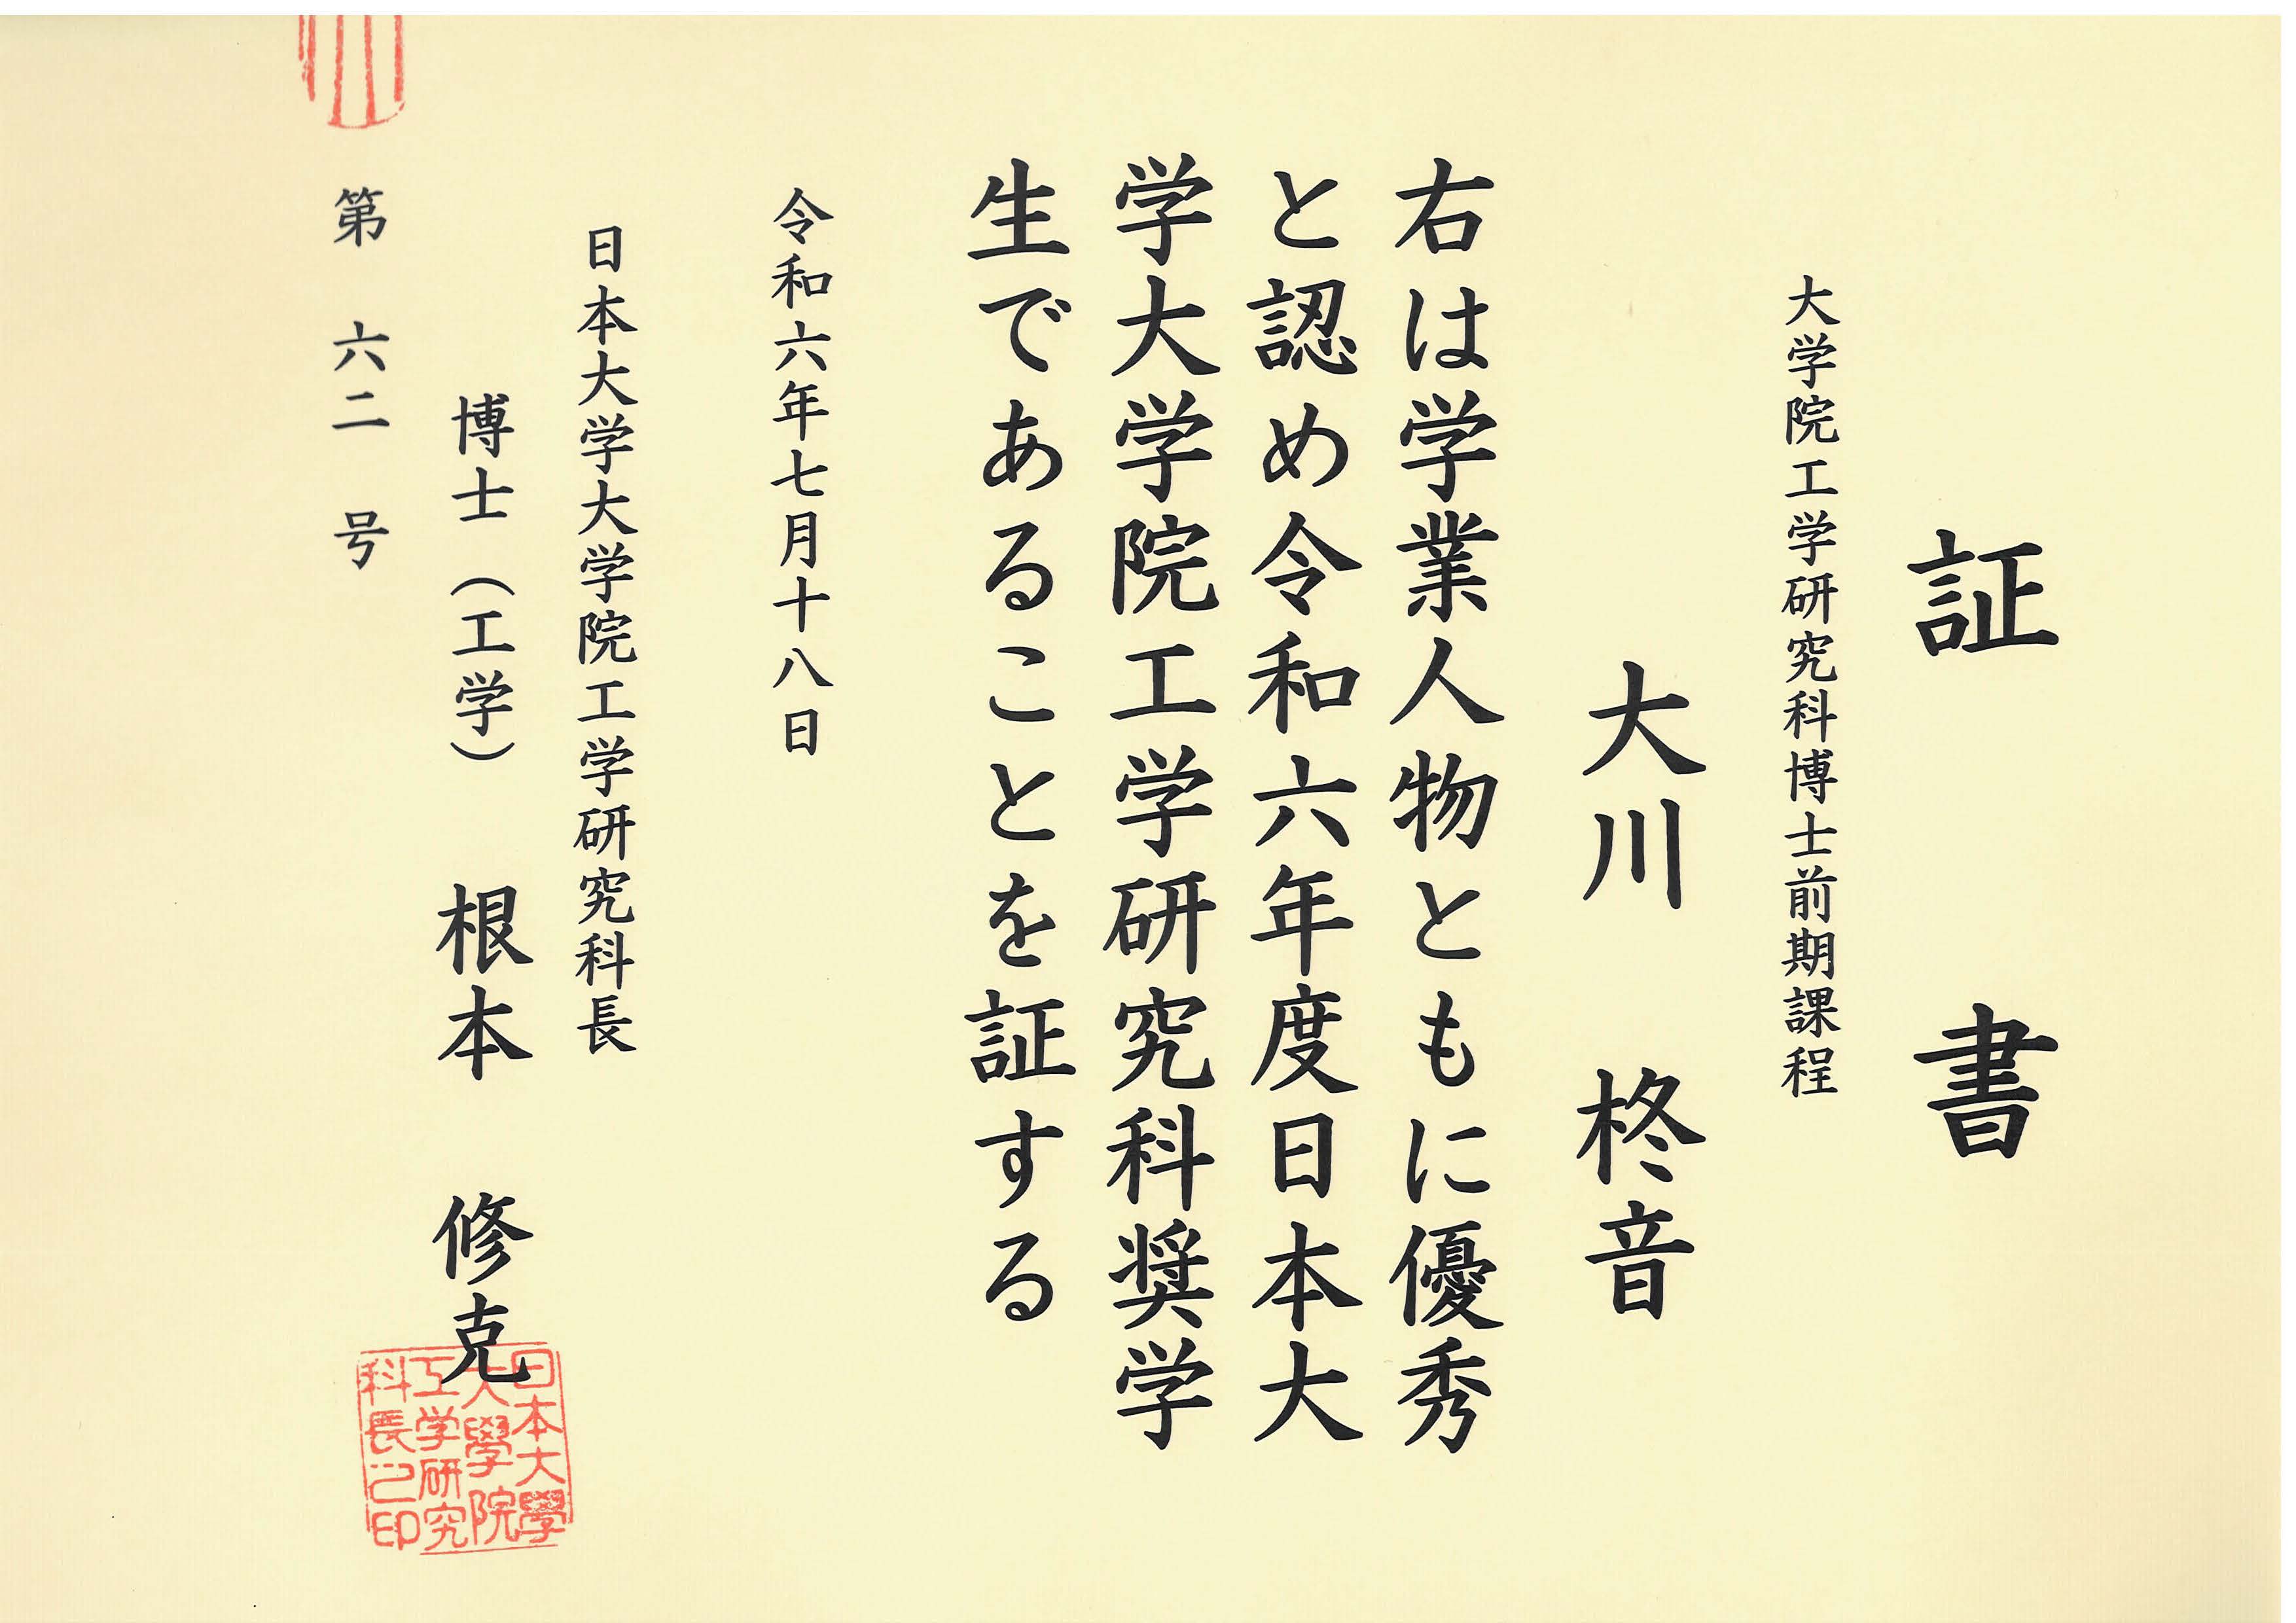 証書
大学院工学研究科博士前期課程
大川 柊音
右は学業人物ともに優秀
と認め令和六年度日本大
学大学院工学研究科奨学
生であることを証する
令和六年七月十八日
日本大学大学院工学研究科長
博士（工学） 根本 修克
第 六二 号
日本大學
大學院
工学研究
科長之印